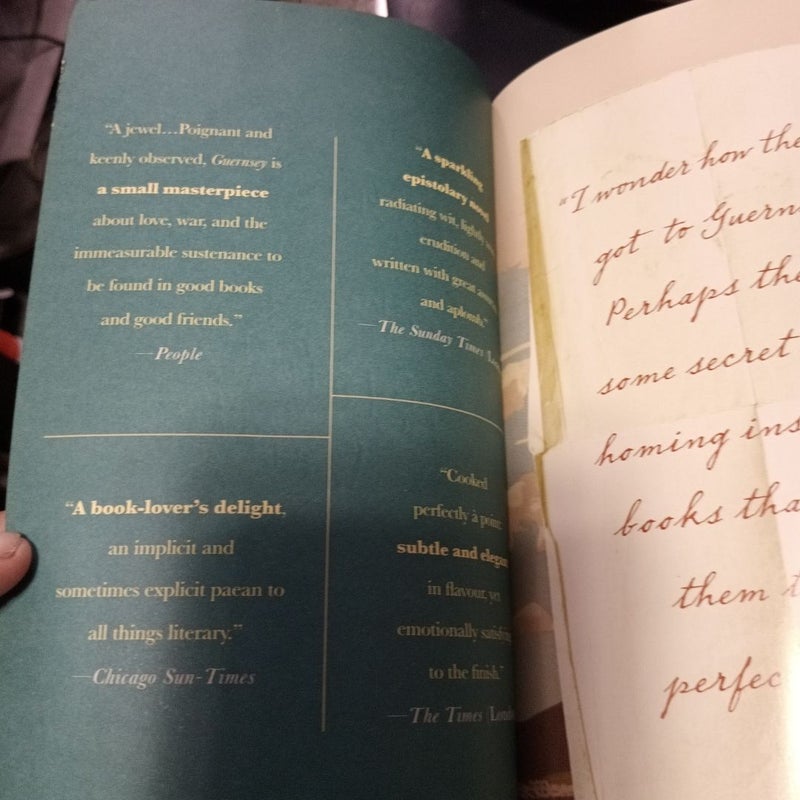 “A jewel…Poignant and
keenly observed, Guernsey is
a small masterpiece
about love, war, and the
immeasurable sustenance to
be found in good books
and good friends.”
—People
“A sparkling
epistolary novel
radiating wit, lightly
erudition and
written with great
and aplomb.”
—The Sunday Times
“A book-lover’s delight,
an implicit and
sometimes explicit paean to
all things literary.”
—Chicago Sun-Times
“Cooked
perfectly à point:
subtle and
in flavour, yet
emotionally
to the finish.”
—The Times
“I wonder how the
got to
Perhaps
some secret
homing
books
them